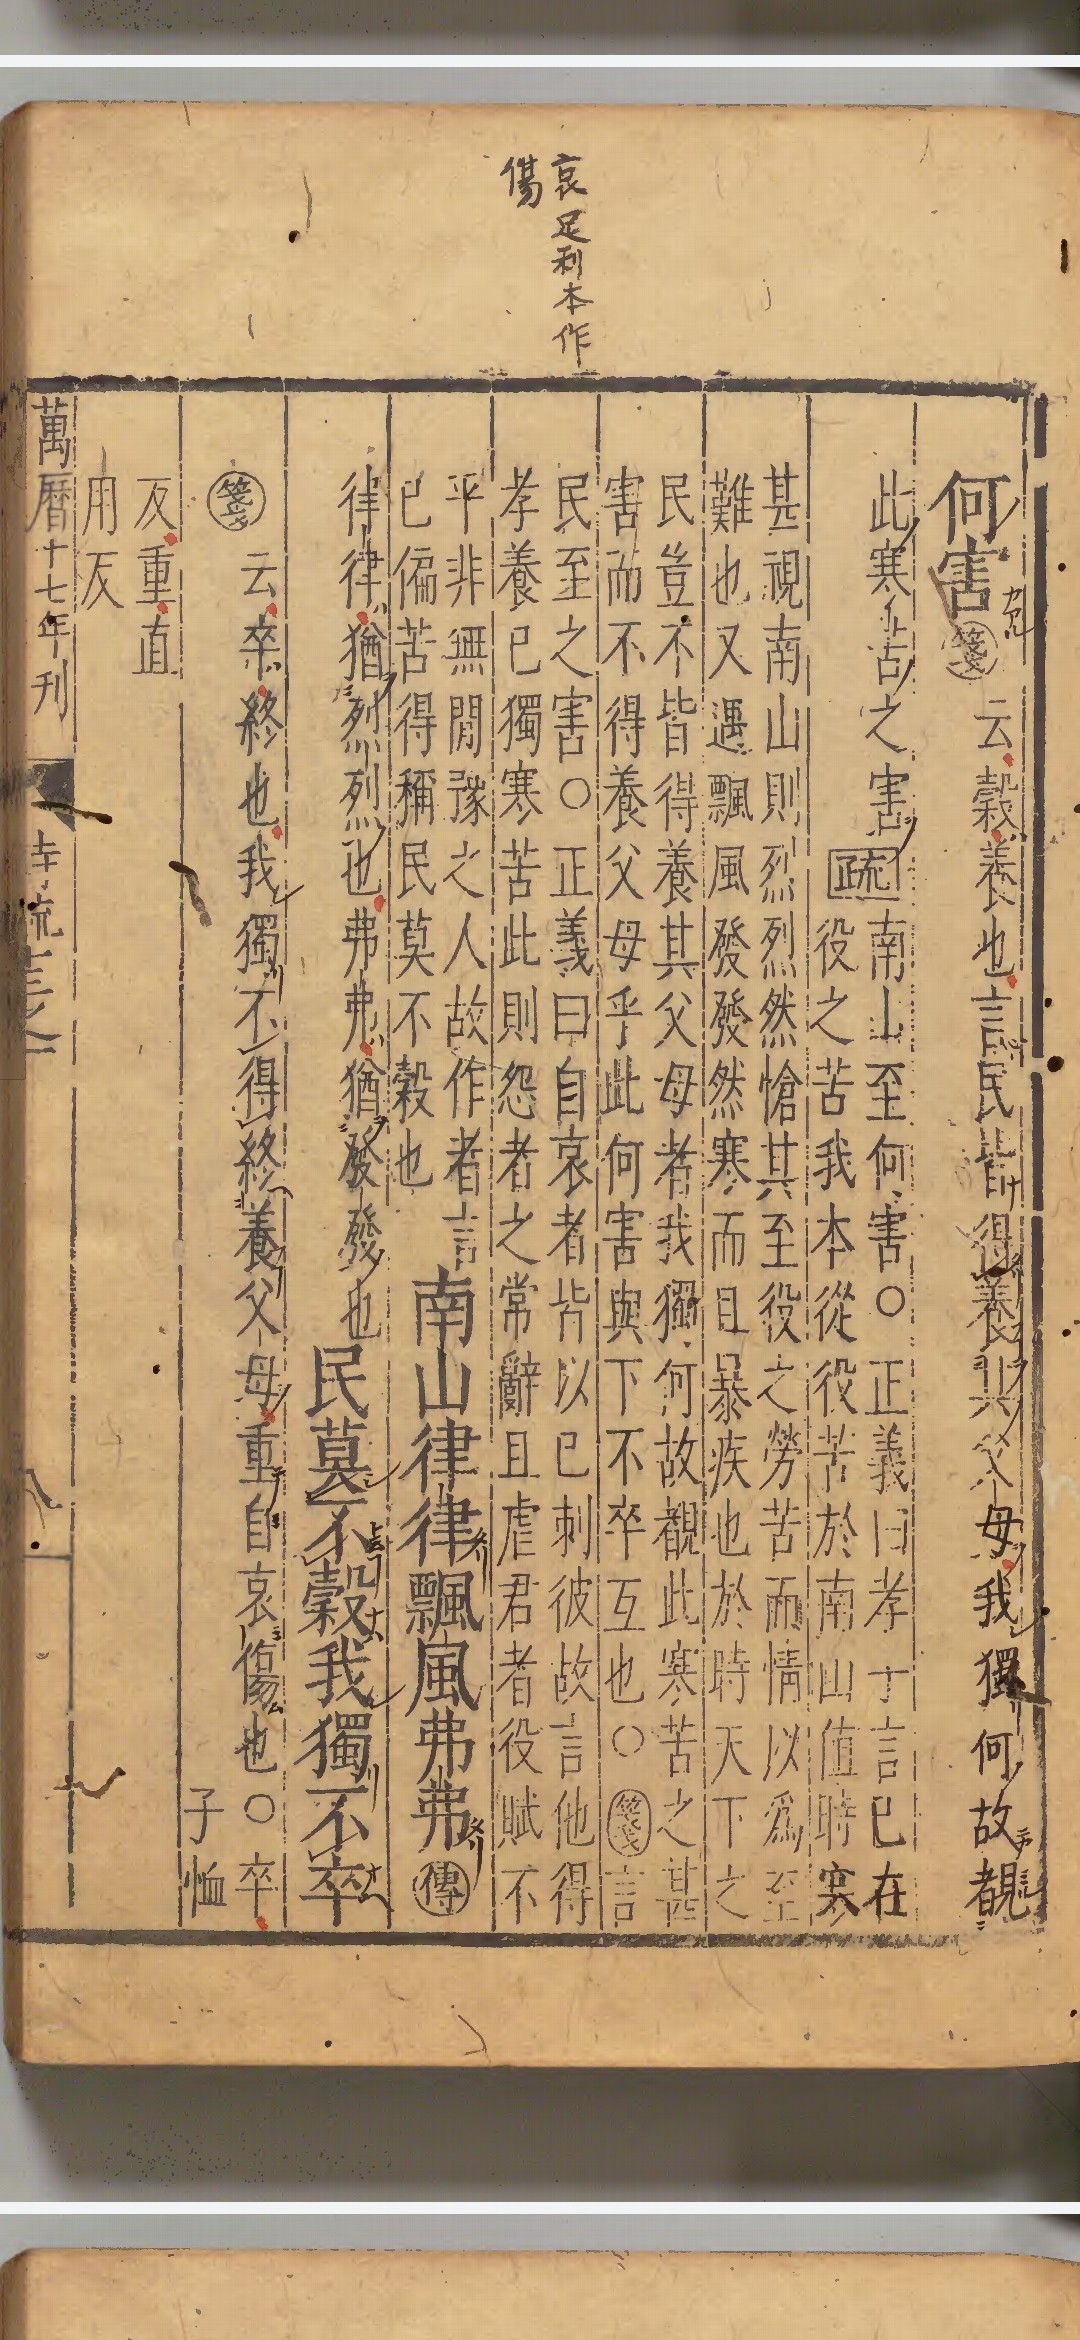 哀足利本作
傷
何害箋云穀養也言民皆得養其父母我獨何故覩
此寒苦之害疏南山至何害○正義曰孝子言已在
役之苦我本從役苦於南山值時寒
甚視南山則烈烈然愴其至役之勞苦而情以為至
難也又遇飄風發發然寒而且暴疾也於時天下之
民豈不皆得養其父母者我獨何故覩此寒苦之甚
害而不得養父母乎此何害與下不卒互也○箋言
民至之害○正義曰自哀者皆以已刺彼故言他得
孝養已獨寒苦此則怨者之常辭且虐君者役賦不
平非無閒豫之人故作者言
已偏苦得稱民莫不穀也
南山律律飄風弗弗傳
律律猶烈烈也弗弗猶發發也
民莫不穀我獨不卒
箋云卒終也我獨不得終養父母重自哀傷也○卒
子恤
反重直
用反
萬曆十七年刊
寺流